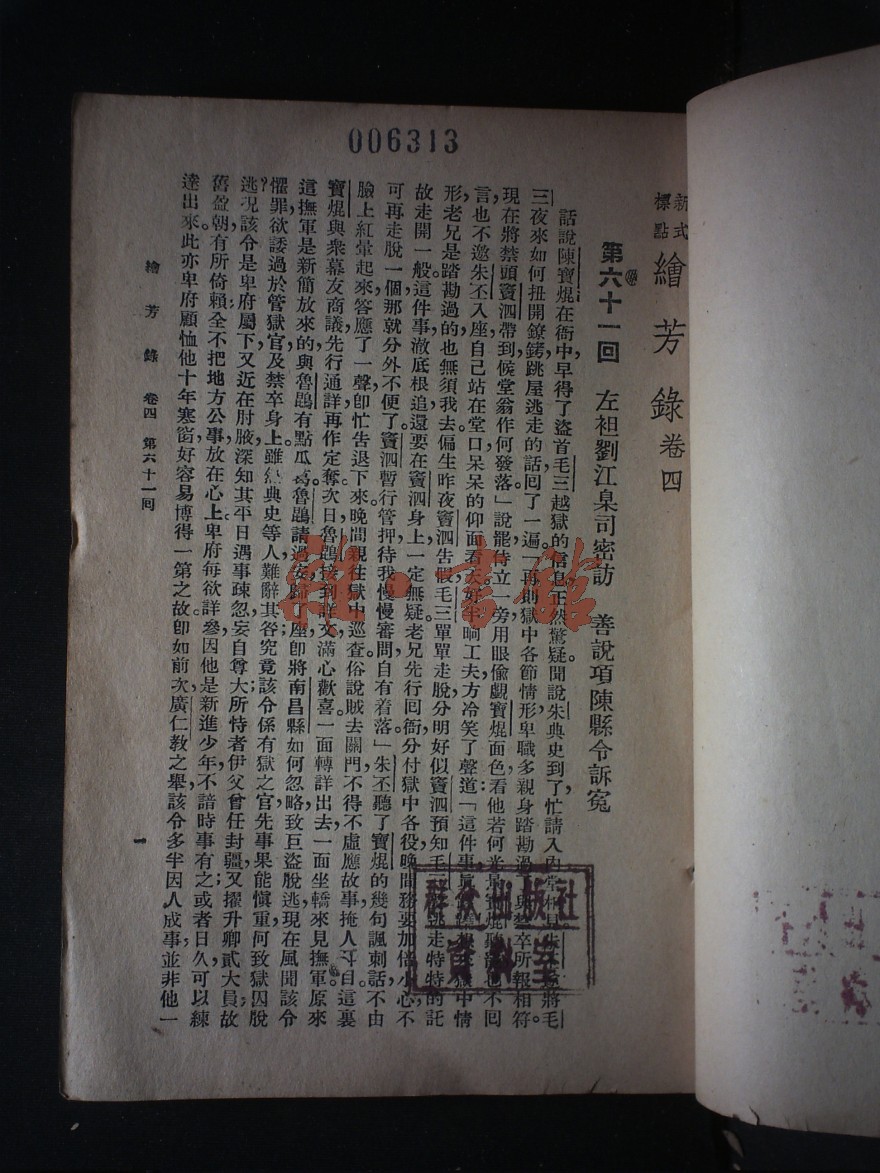 006313
新式
標點
繪芳錄卷四
第六十一回 左袒劉江臬司密訪 善說項陳縣令訴冤
話說陳寶焜在衙中早得了盜首毛三越獄的信息正然驚疑聞說朱典史到了忙請入內堂相見朱丕將毛
三夜來如何扭開鐐銬跳屋逃走的話回了一遍「再則獄中各節情形卑職多親身踏勘過與禁卒所報相符。
現在將禁頭竇泗帶到候堂翁作何發落」說罷侍立一旁用眼偷覷寶焜面色看他若何光景寶焜聽說也不回
言也不邀朱丕入座自己站在堂口呆呆的仰面看天好半晌工夫方冷笑了聲道「這件事獄中情
形老兄是踏勘過的也無須我去偏生昨夜竇泗告假毛三單單走脫分明好似竇泗預知毛三逃走特特的託
故走開一般這件事澈底根追還要在竇泗身上一定無疑老兄先行回衙分付獄中各役晚間務要加倍小心不
可再走脫一個那就分外不便了。竇泗暫行管押待我慢慢審問自有着落」朱丕聽了寶焜的幾句諷刺話不由
臉上紅暈起來答應了一聲卽忙告退下來。晚間親往獄中巡查俗說賊去關門不得不虛應故事掩人耳目這裏
寶焜與衆幕友商議先行通詳再作定奪次日魯鵾接到詳文滿心歡喜一面轉詳出去一面坐轎來見撫軍。原來
這撫軍是新簡放來的與魯鵾有點瓜葛魯鵾請過安歸了座卽將南昌縣如何忽略致巨盜脫逃現在風聞該令
懼罪欲諉過於管獄官及禁卒身上。雖然典史等人難辭其咎究竟該令係有獄之官先事果能愼重何致獄囚脫
逃?况該令是卑府屬下又近在肘腋深知其平日遇事疎忽妄自尊大所恃者伊父曾任封疆又擢升卿貳大員故
舊盈朝有所倚賴全不把地方公事放在心上卑府每欲詳參因他是新進少年不諳時事有之或者日久可以練
達出來。此亦卑府顧恤他十年寒窗好容易博得一第之故卽如前次廣仁敎之舉該令多半因人成事並非他一
繪芳錄 卷四 第六十一回
一
群众出版社
資料室